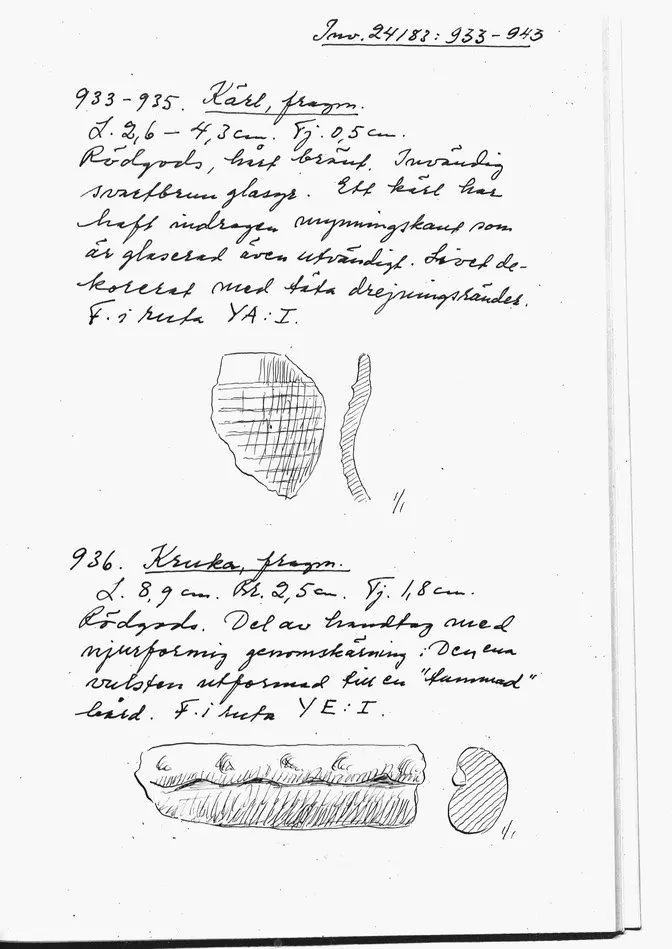 Inv. 24183: 933-943
933-935. Kärl, fragm.
L. 2,6 - 4,3 cm. Tj. 0,5 cm.
Rödgods, hårt bränt. Invändig
svartbrun glasyr. Ett kärl har
haft indragen mynningskant som
är glaserad även utvändigt. Livet de-
korerat med täta drejningsränder.
F. i ruta YA:I.
1/1
936. Kruka, fragm.
L. 8,9 cm. Br. 2,5 cm. Tj. 1,8 cm.
Rödgods. Del av handtag med
njurformig genomskärning. Den ena
vulsten utformad till en "tummad"
bård. F. i ruta YE:I.
1/1